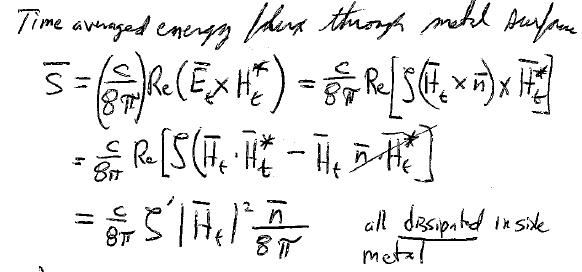 Time averaged energy flux through metal surface
S̄ = (c/8π) Re(Ē_t × H̄_t^*) = c/8π Re[ζ(H̄_t × n̄) × H̄_t^*]
= c/8π Re[ζ(H̄_t · H̄_t^* − H̄_t n̄·H̄_t^*]
= c/8π ζ' |H̄_t|² n̄/8π all dissipated inside
metal